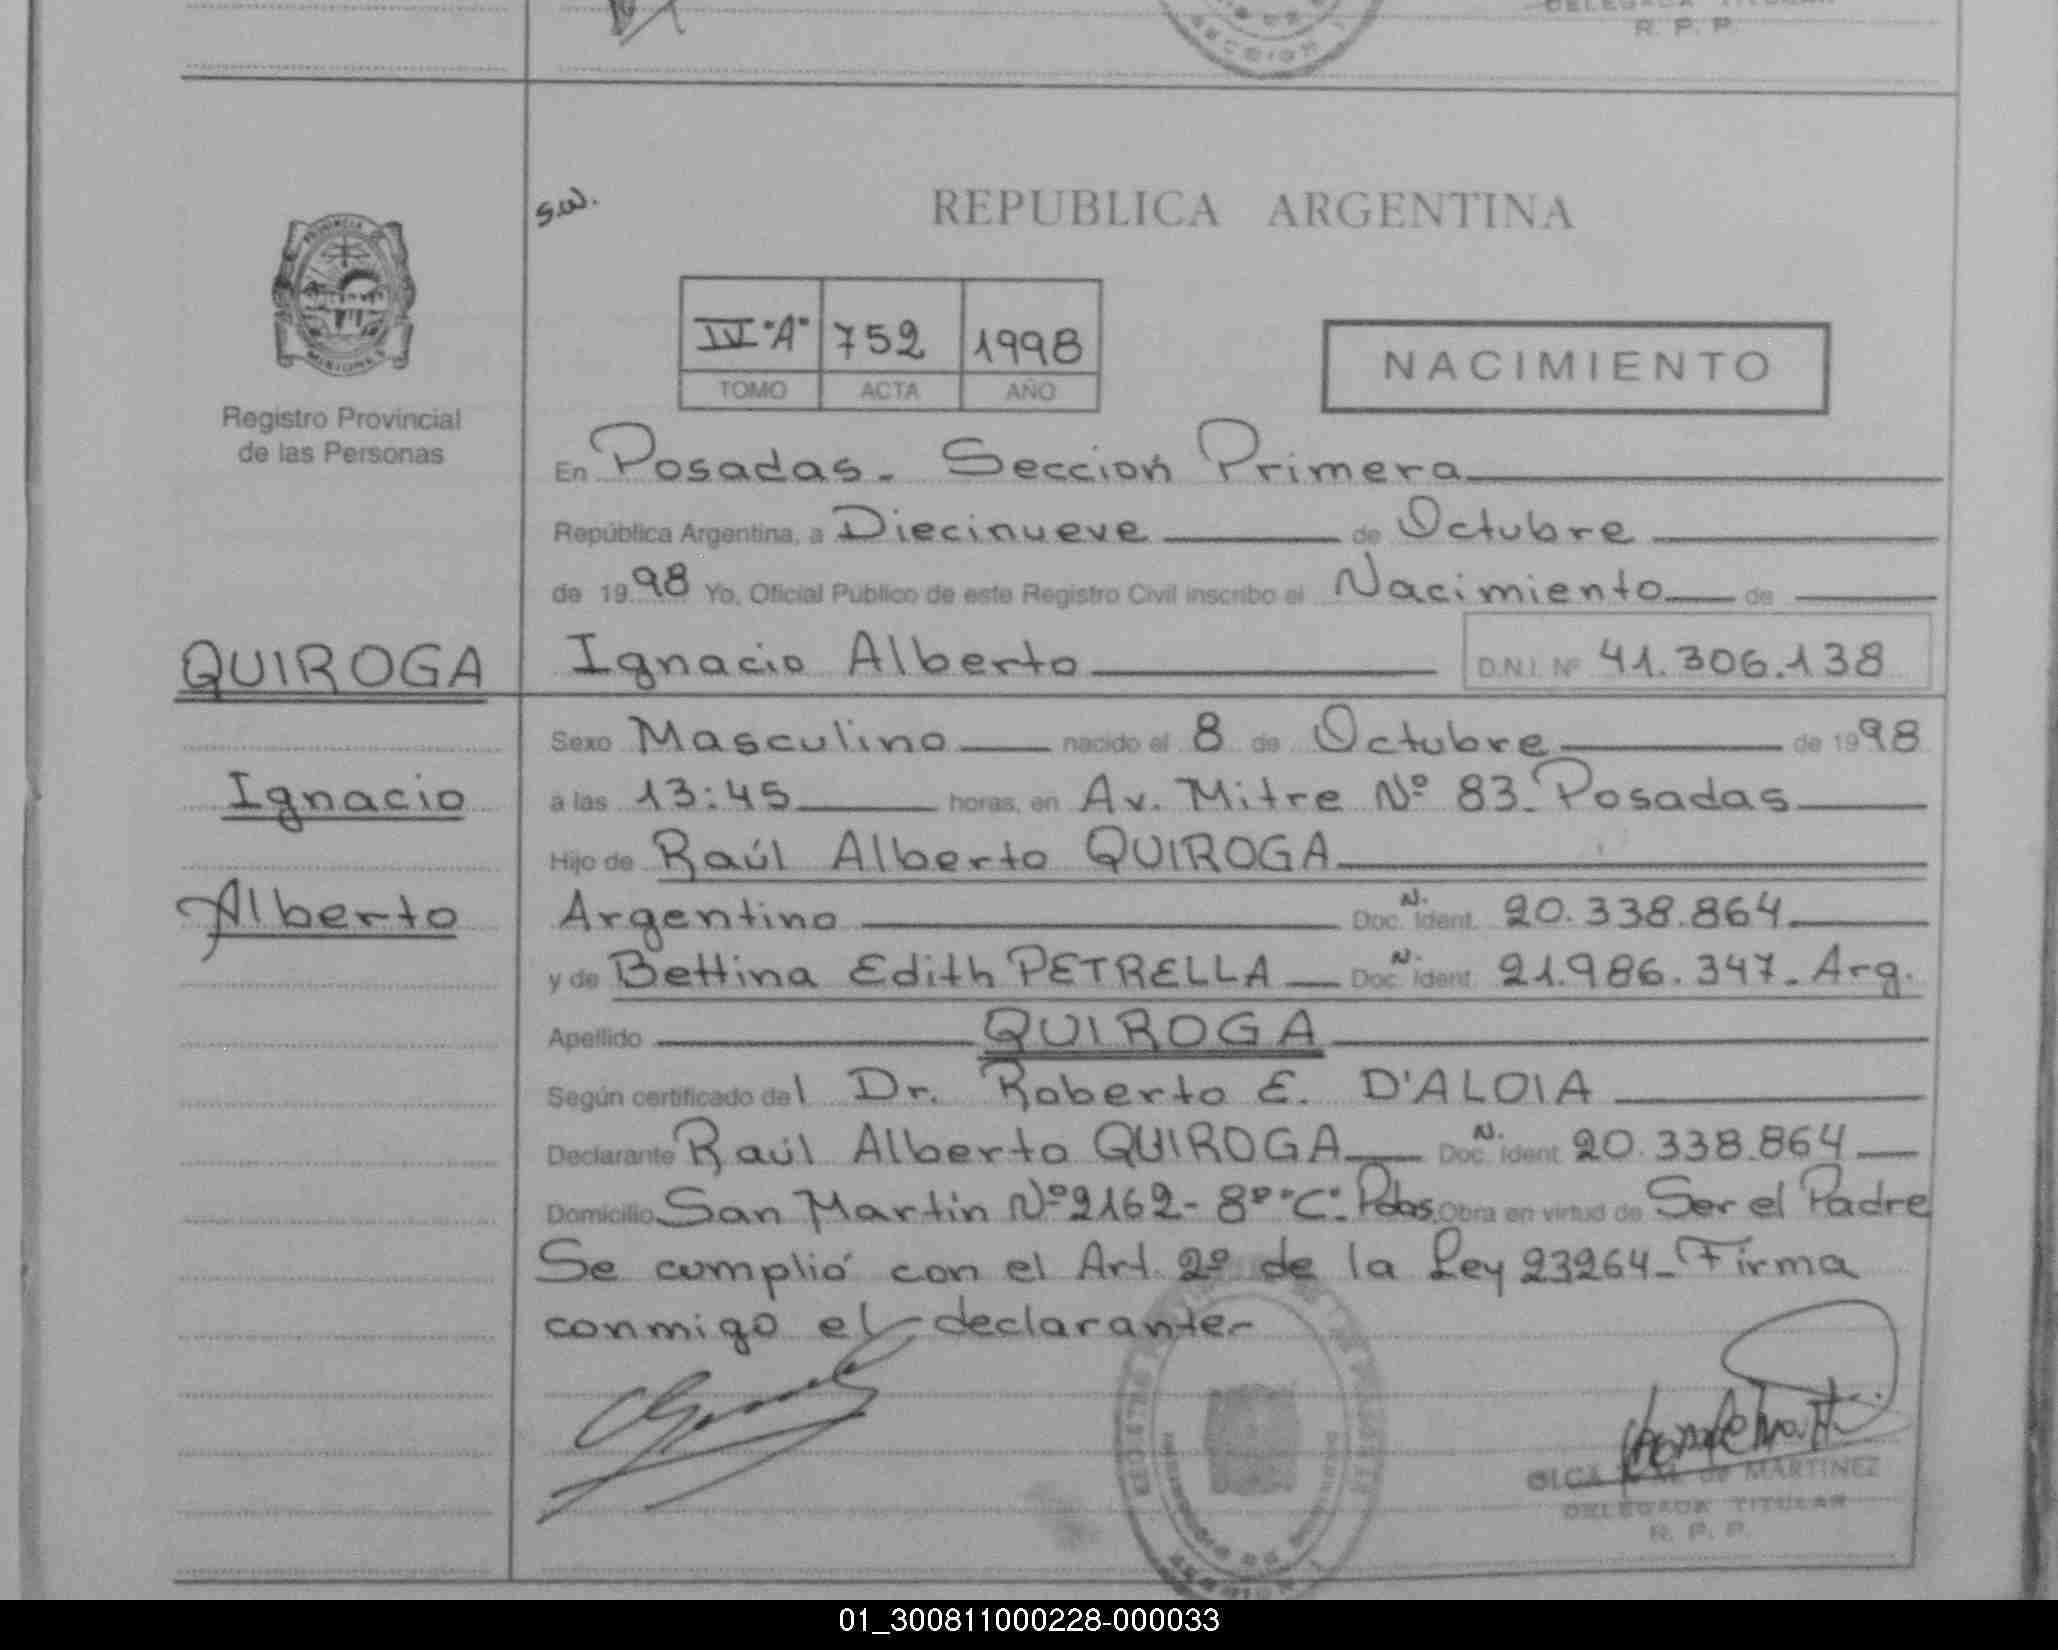 DELEGADA TITULAR
R. P. P.
SECCION 1
s.w.
REPUBLICA ARGENTINA
PROVINCIA DE
MISIONES
IV "A" 752 1998
TOMO ACTA AÑO
NACIMIENTO
Registro Provincial
de las Personas
En Posadas - Sección Primera
República Argentina, a Diecinueve de Octubre
de 1998 Yo, Oficial Público de este Registro Civil inscribo el Nacimiento de
QUIROGA
Ignacio Alberto D.N.I. Nº 41.306.138
Sexo Masculino nacido el 8 de Octubre de 1998
Ignacio
a las 13:45 horas, en Av. Mitre Nº 83 - Posadas
Hijo de Raúl Alberto QUIROGA
Alberto
Argentino Doc. N. Ident. 20.338.864
y de Bettina Edith PETRELLA Doc. N. Ident. 21.986.347 - Arg.
Apellido QUIROGA
Según certificado del Dr. Roberto E. D'ALOIA
Declarante Raúl Alberto QUIROGA Doc. N. Ident. 20.338.864
Domicilio San Martín Nº 2162 - 8º "C". Pdas. Obra en virtud de Ser el Padre
Se cumplió con el Art. 2º de la Ley 23264 - Firma
conmigo el declarante -
OLGA de MARTINEZ
DELEGADA TITULAR
R. P. P.
01_300811000228-000033